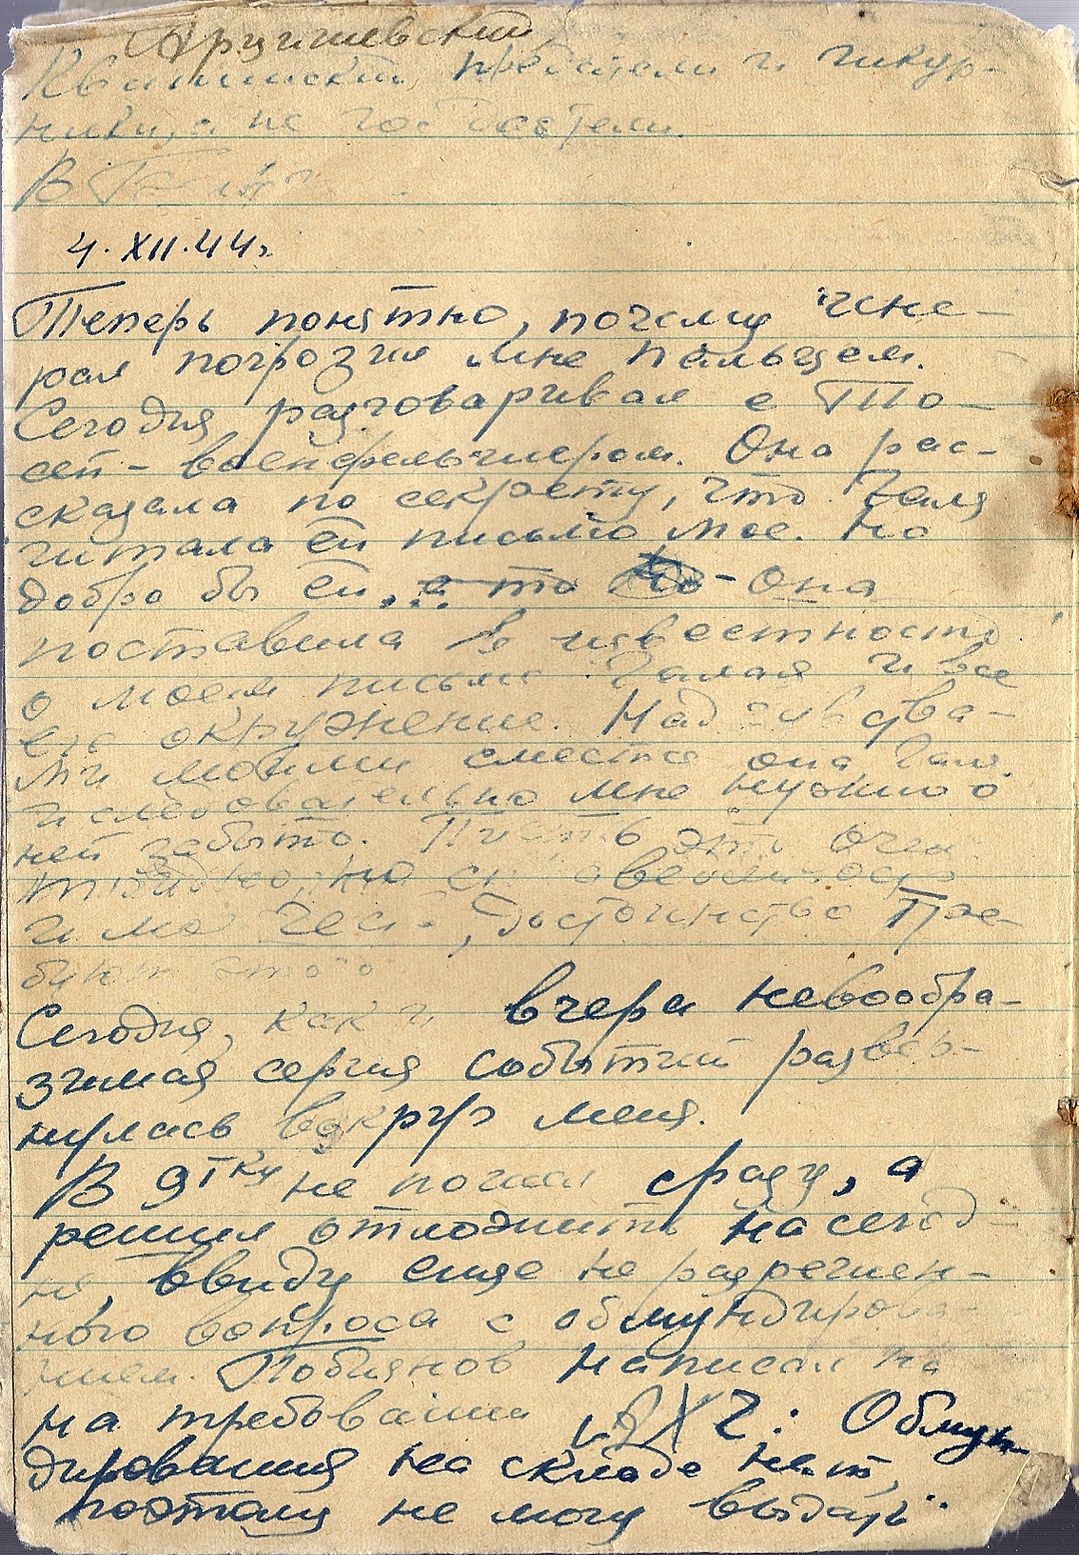 Арцишевский
Квапинский, предатели и
а не
В
4.XII.44г.
Теперь понятно, почему гене-
рал погрозил мне пальцем.
Сегодня разговаривал с То-
сей - военфельдшером. Она рас-
сказала по секрету, что Галя
читала ей письмо мое. Но
добро бы ей, а то - она
поставила в известность
о моем письме Галая и все
его окружение. Над чувства-
ми моими смеется она Галя.
и следовательно мне нужно о
ней забыть. Пусть это очень
трудно, но
и моя честь, достоинство тре-
буют этого.
Сегодня, как и вчера невообра-
зимая серия событий развер-
нулась вокруг меня.
В 9тку не попал сразу, а
решил отложить на сегод-
ня, ввиду еще не разрешен-
ного вопроса с обмундирова-
нием. написал на
на требовании АХЧ: Обмун-
дирования на складе нет,
поэтому не могу выдать".